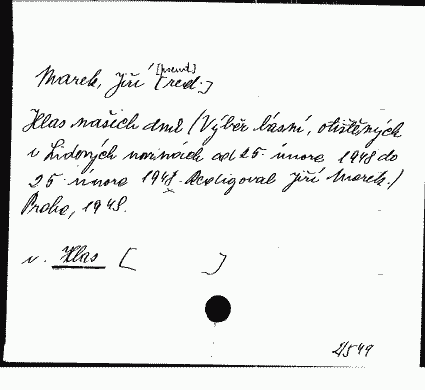 Marek, Jiří [pseud.] [red.]
Hlas našich dnů (Výběr básní, otištěných
v Lidových novinách od 25. února 1948 do
25. února 1948. Redigoval Jiří Marek.)
Praha, 1948.
v. Hlas [ ]
2/549